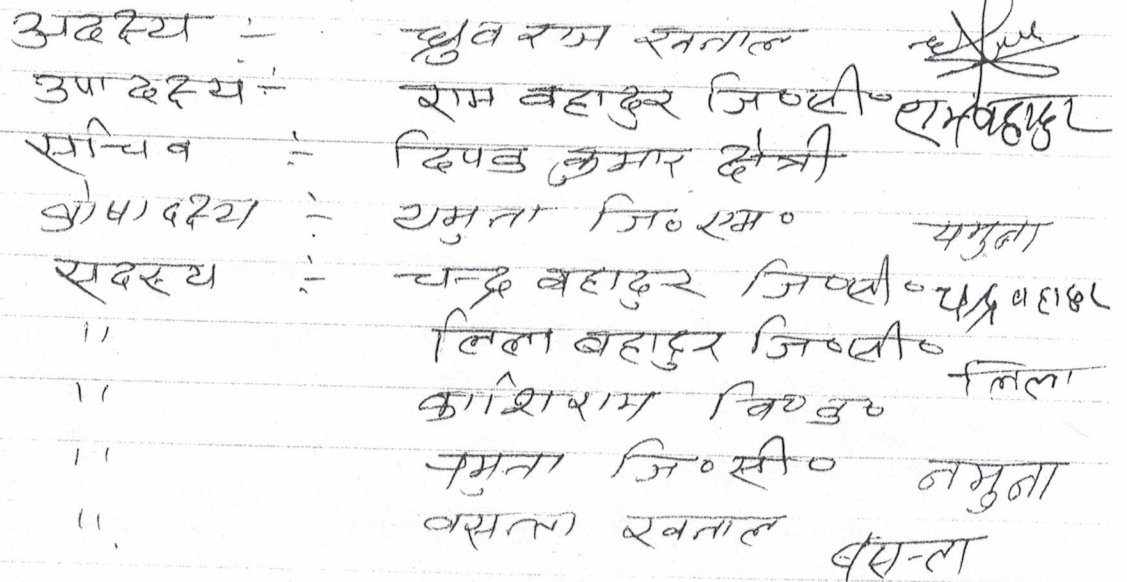 अदक्ष्य :- ध्रुव राज खनाल
उपादक्ष्य :- राम बहादुर जि॰सी॰ रामबहादुर
सचिव :- दिपक कुमार क्षेत्री
कोषादक्ष्य :- यमुना जि॰एम॰ यमुना
सदस्य :- चन्द्र बहादुर जि॰सी॰ चन्द्र बहादुर
" लिला बहादुर जि॰सी॰ लिला
" काशिराम वि॰क॰
" नमुना जि॰सी॰ नमुना
" वसन्ता खनाल बसन्ता